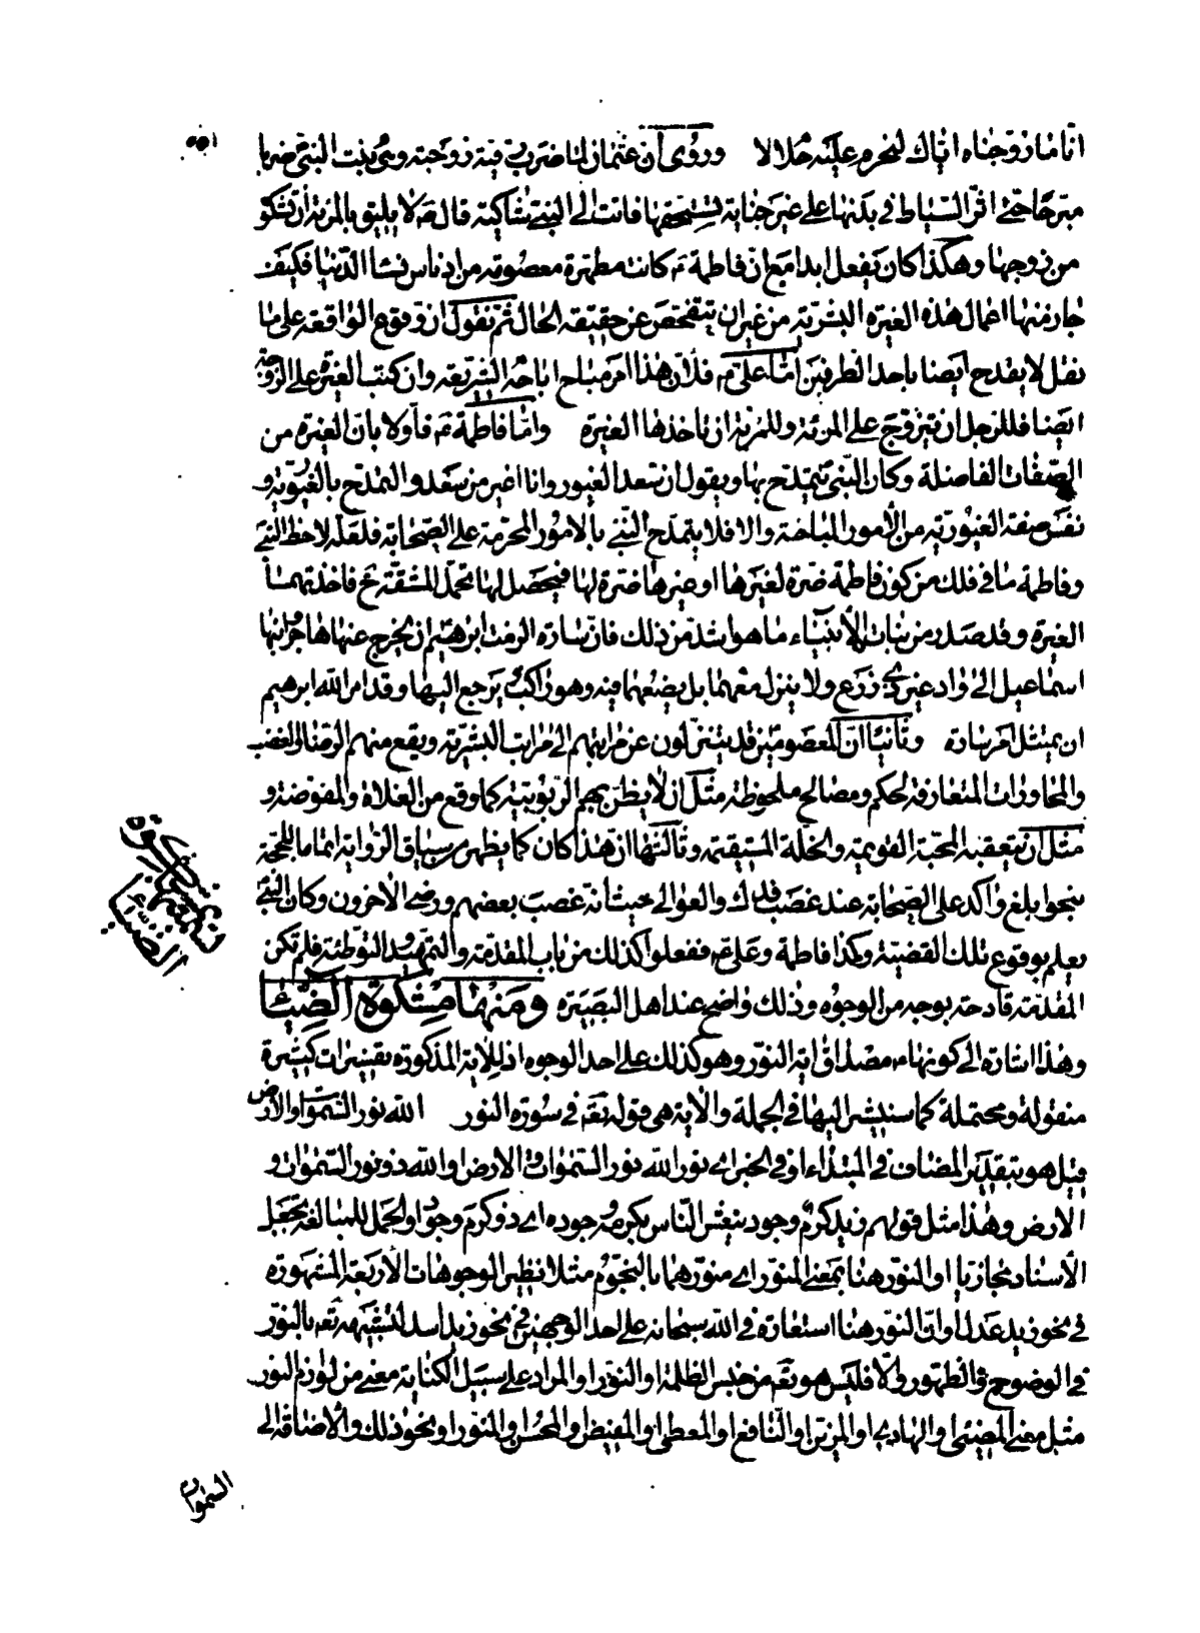 انا ما زوجناه اياك لنحرم عليه حلالا وروى ان عثمان لما ضرب رقية زوجته وهى بنت النبى ضربا
مبرحا حتى اثر السياط فى بدنها على غير جناية تستحقها فاتت الى النبى شاكية قال ص لا يليق بالمرئة ان تشكو
من زوجها وهكذا كان يفعل ابدا مع ان فاطمة ع كانت مطهرة معصومة من ادناس نساء الدنيا فكيف
جاز منها اعمال هذه الغيرة البشرية من غير ان يتفحص عن حقيقة الحال ثم نقول ان وقوع الواقعة على ما
نقل لا يقدح ايضا باحد الطرفين اما على ع فلان هذا امر مباح اباحه الشريعة وان كتب الغيرة على الزوجة
ايضا فللرجل ان يتزوج على المرئة وللمرئة ان تاخذها الغيرة واما فاطمة ع فاولا بان الغيرة من
الصفات الفاضلة وكان النبى يتمدح بها ويقول ان سعد الغيور وانا اغير من سعد والتمدح بالغيورية و
نفس صفة الغيورية من الأمور المباحة والا فلا يتمدح النبى بالامور المحرمة على الصحابة فلعله لاحظ النبى
وفاطمة ما فى ذلك من كون فاطمة ضرة لغيرها او غيرها ضرة لها فيحصل لها تحمل المشقة ح فاخذتهما
الغيرة وقد صدر من بنات الأنبياء ما هو اشد من ذلك فان سارة الزمت ابرهيم ان يخرج عنها هاجر وابنها
اسماعيل الى واد غير ذى زرع ولا ينزل معهما بل يضعهما فيه وهو راكب يرجع اليها وقد امر الله ابرهيم
ان يمتثل امر سارة وثانيا ان المعصومين قد يتنزلون عن مراتبهم الى مراتب البشرية ويقع منهم الرضا والغضب
والمحاورات المتعارفة لحكم ومصالح ملحوظة مثل ان لا يظن بهم الربوبية كما وقع من الغلاة والمفوضة و
مثل ان يعقبه المحبة القويمة والخلة المستقيمة وثالثها ان هذا كان كما يظهر من سياق الرواية اتماما للحجة
بنحو ابلغ واكد على الصحابة عند غصب فدك والعوالى حيث انه غصب بعضهم ورضى الاخرون وكان النبى
يعلم بوقوع تلك القضية وكذا فاطمة وعلى ع ففعلوا كذلك من باب المقدمة والتمهيد والتوطئة فلم تكن
المقدمة قادحة بوجه من الوجوه وذلك واضح عند اهل البصيرة ومنها مشكوة الضياء
وهذا اشارة الى كونها ع مصداق اية النور وهو كذلك على احد الوجوه اذ للاية المذكورة تفسيرات كثيرة
منقولة ومحتملة كما سنشير اليها فى الجملة والاية هى قوله تعه فى سورة النور الله نور السموات والارض
قيل هو بتقدير المضاف فى المبتداء او فى الخبر اى نور الله نور السموات والارض او الله ذو نور السموات و
الارض وهذا مثل قولهم زيد كرم وجود ينعش الناس بكرمه وجوده اى ذو كرم وجود او الحمل للمبالغة بجعل
الأسناد مجازيا او النور هنا بمعنى المنور اى منورهما بالنجوم مثلا نظير الوجوهات الأربعة المشهورة
فى نحو زيد عدل او ان النور هنا استعارة فى الله سبحانه على احد الوجهين فى نحو زيد اسد لتشبيهه تعه بالنور
فى الوضوح والظهور والا فليس هو تعه من جنس الظلمة او النور او المراد على سبيل الكناية معنى من لوازم النور
مثل معنى المضيئ او الهادى او المزين او النافع او المعطى او المفيض او المحسن او المنور او نحو ذلك والأضافة الى
السموات